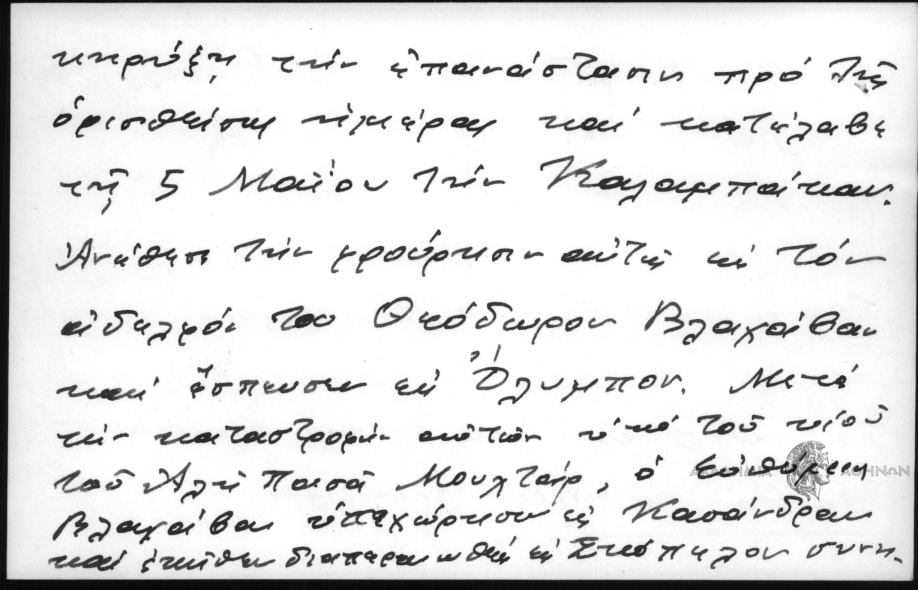 κηρύξῃ τήν ἐπανάστασιν πρό τῆς
ὁρισθείσης ἡμέρας καί κατέλαβε
τῇ 5 Μαΐου τήν Καλαμπάκαν.
Ἀνέθεσε τήν φρούρησιν αὐτῆς εἰς τόν
ἀδελφόν του Θεόδωρον Βλαχάβαν
καί ἔσπευσεν εἰς Ὄλυμπον. Μετά
τήν καταστροφήν αὐτῶν ὑπό τοῦ υἱοῦ
τοῦ Ἀλῆ Πασᾶ Μουχτάρ, ὁ Εὐθύμιος
Βλαχάβας ὑπεχώρησεν εἰς Κασάνδραν
καί ἐκεῖθεν διαπεραιωθείς εἰς Σκόπελον συνε-
ΑΚΑΔΗΜΙΑ ΑΘΗΝΩΝ